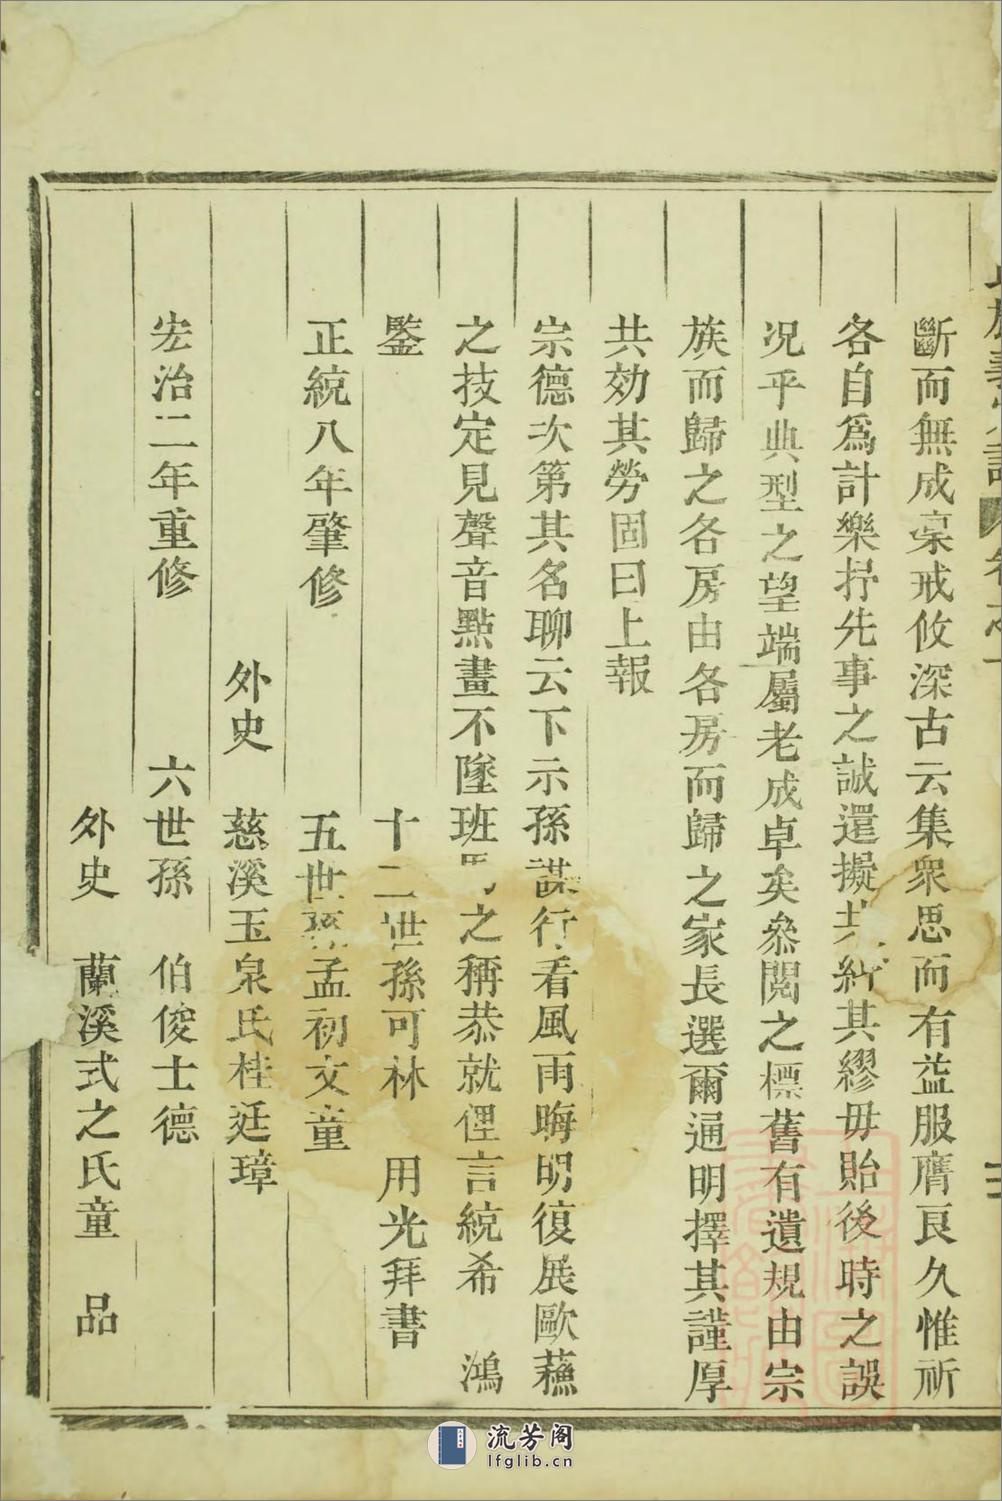 斷而無成稾戒攸深古云集衆思而有益服膺良久惟祈
各自爲計樂抒先事之誠還擬共糾其繆毋貽後時之誤
况乎典型之望端屬老成卓矣叅閱之標舊有遺規由宗
族而歸之各房由各房而歸之家長選爾通明擇其謹厚
共効其勞固曰上報
宗德次第其名聊云下示孫謀行看風雨晦明復展歐蘓
之技定見聲音點畫不墬班馬之稱恭就俚言統希 鴻
鍳
十二世孫可林 用光拜書
正統八年肇修 五世孫孟初文童
外史 慈溪玉泉氏桂廷璋
宏治二年重修 六世孫 伯俊士德
外史 蘭溪式之氏童 品
流芳阁
lfglib.cn